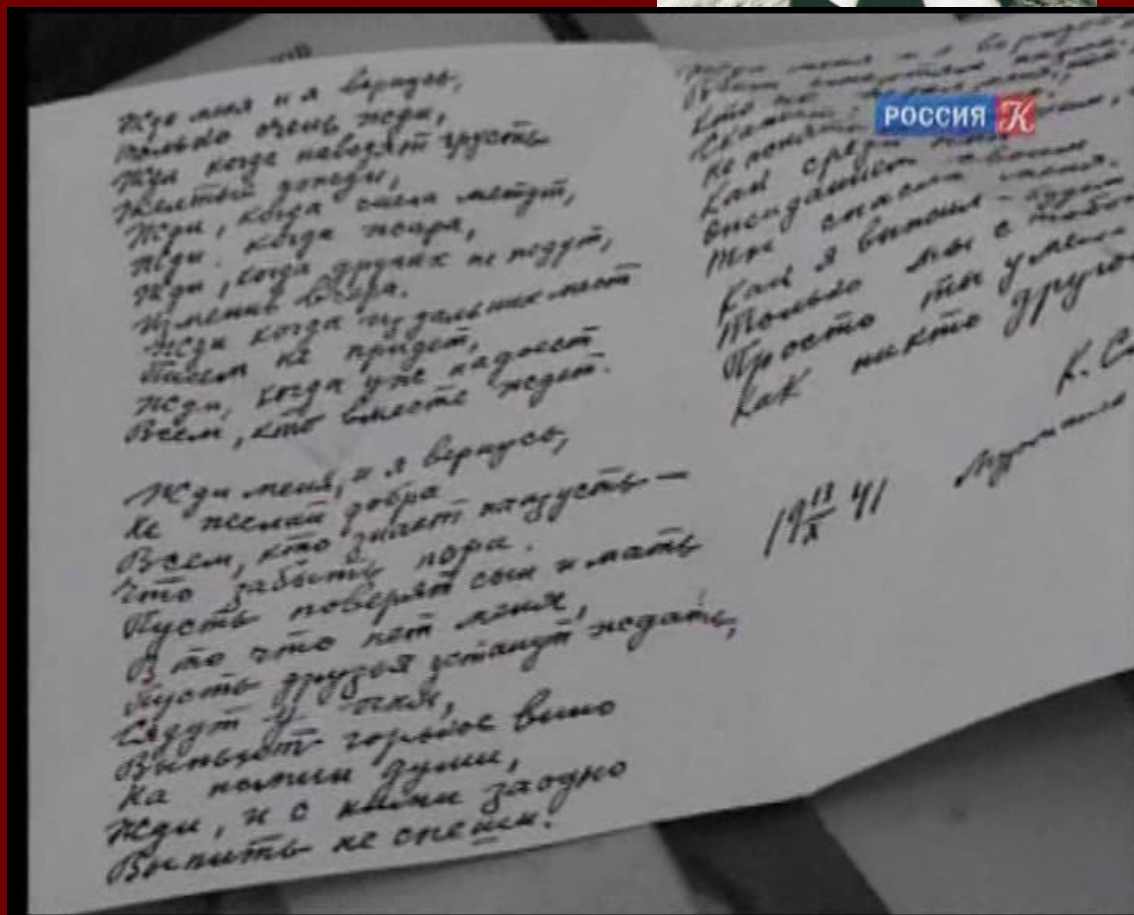 Жди меня и я вернусь,
только очень жди,
Жди когда наводят грусть
Желтые дожди,
Жди, когда снега метут,
Жди. когда жара,
Жди, когда других не ждут,
Изменив вчера.
Жди когда из дальних мест
Писем не придет,
Жди, когда уже надоест
Всем, кто вместе ждет.
Жди меня, и я вернусь,
Не желай добра
Всем, кто знает наизусть —
Что забыть пора.
Пусть поверят сын и мать
В то что нет меня,
Пусть друзья устанут ждать,
Сядут у огня,
Выпьют горькое вино
На помин души,
Жди, и с ними заодно
Выпить не спеши.
Жди меня и я
Кто не
Не понять
Как среди
Ожиданием своим
Ты спасла меня.
Как я выжил - будет
Только мы с тобой
Просто ты умела
Как никто другой
К. С
19 13/X 41
РОССИЯ К